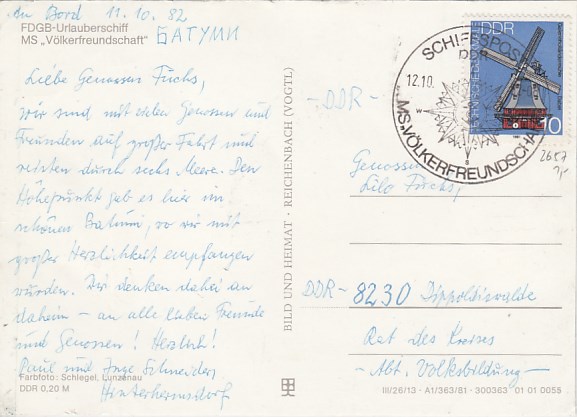 An Bord 11.10.82
FDGB-Urlauberschiff
MS „Völkerfreundschaft" БАТУМИ
Liebe Genossen Fuchs,
wir sind mit vielen Genossen und
Freunden auf großer Fahrt und
reisten durch sechs Meere. Den
Höhepunkt gab es hier im
schönen Batumi, wo wir mit
großer Herzlichkeit empfangen
wurden. Wir denken dabei an
daheim – an alle lieben Freunde
und Genossen! Herzlichst!
Paul und Inge Schneider,
Hinterhermsdorf
Farbfoto: Schlegel, Lunzenau
DDR 0,20 M
BILD UND HEIMAT · REICHENBACH (VOGTL)
SCHIFFSPOST
DDR
12.10.
W
S
MS „VÖLKERFREUNDSCHA
DDR
10
- DDR -
Genossen
Lilo Fuchs,
DDR - 8230 Dippoldiswalde
Rat des Kreises
- Abt. Volksbildung -
III/26/13 · A1/363/81 · 300363 01 01 0055